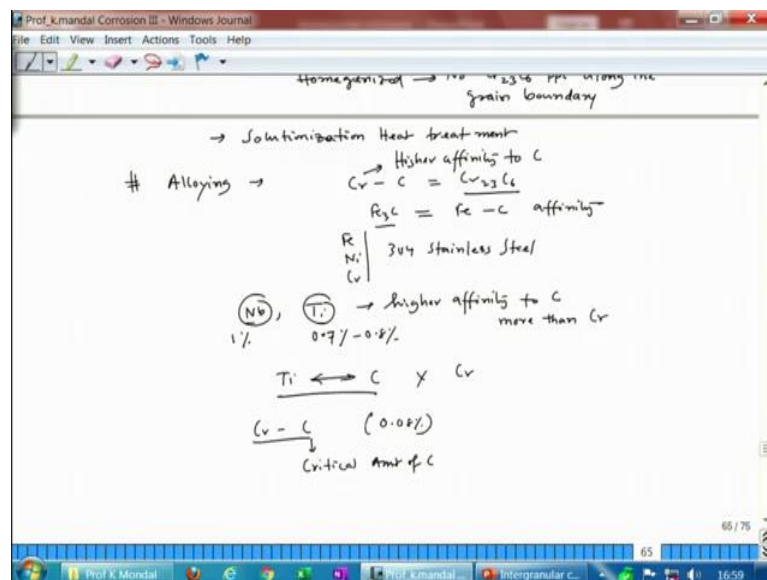 Prof_k.mandal Corrosion III - Windows Journal
File Edit View Insert Actions Tools Help
Homogenized → No Cr23C6 ppt along the
grain boundary
→ Solutimization Heat treatment
Higher affinity to C
# Alloying → Cr - C = Cr23C6
Fe3C = Fe - C affinity
Fe
Ni 304 Stainless Steel
Cr
Nb, Ti → higher affinity to C
more than Cr
1% 0.7% - 0.8%
Ti ↔ C X Cr
Cr - C (0.08%)
Critical Amt of C
65 / 75
65
Prof K Mondal Prof_k.mandal ... Intergranular c... 16:59